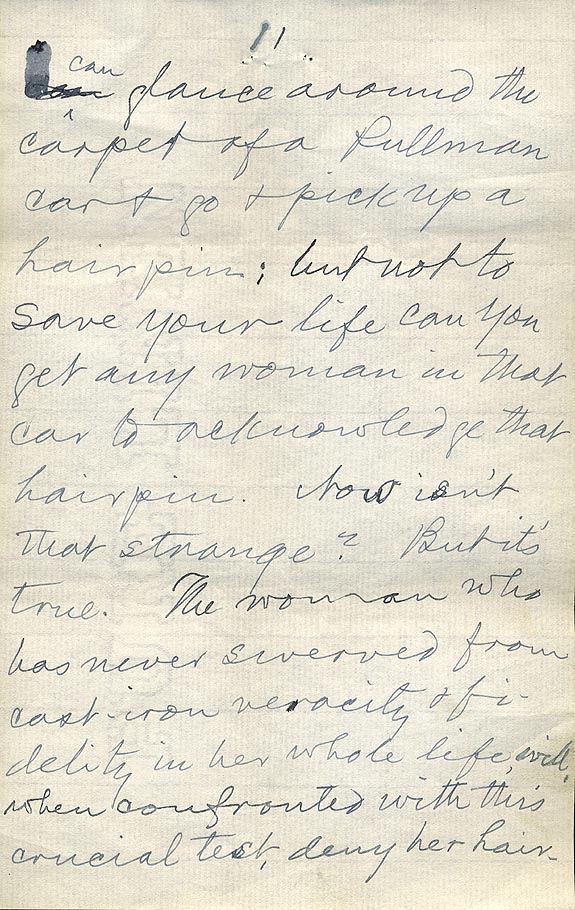 11
can
glance around the
carpet of a Pullman
car & go & pick up a
hair pin; but not to
save your life can you
get any woman in that
car to acknowledge that
hair pin. Now isn't
that strange? But it's
true. The woman who
has never swerved from
cast-iron veracity & fi-
delity in her whole life, will,
when confronted with this
crucial test, deny her hair-